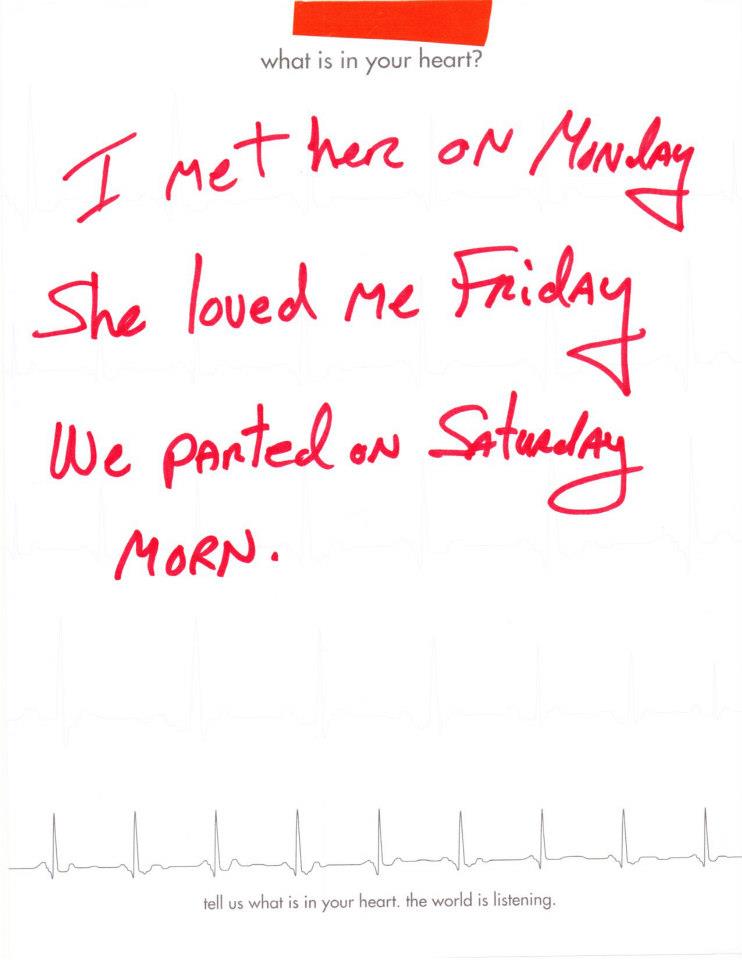 what is in your heart?
I met her on Monday
She loved me Friday
We parted on Saturday
MORN.
tell us what is in your heart. the world is listening.